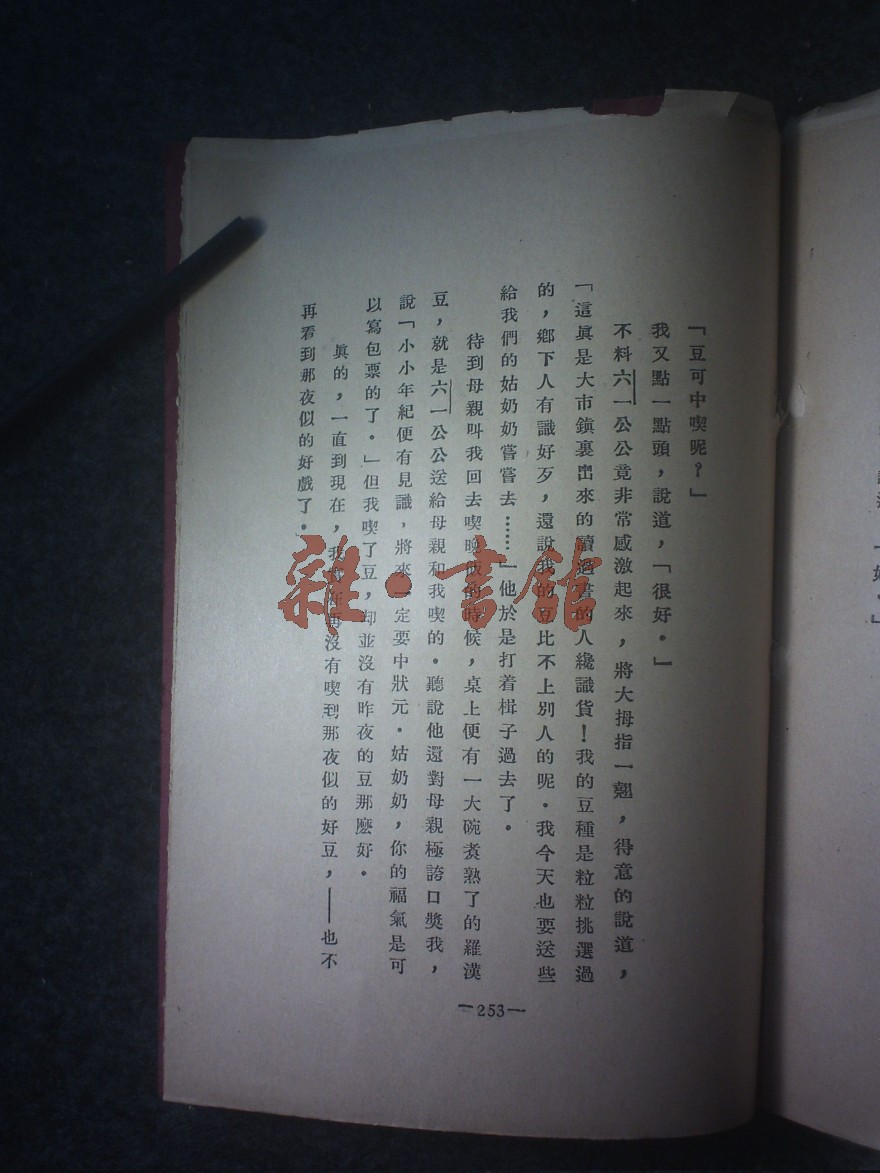 「豆可中喫呢？」
我又點一點頭，說道，「很好．」
不料六一公公竟非常感激起來，將大拇指一翹，得意的說道，
「這眞是大市鎭裏出來的讀過書的人纔識貨！我的豆種是粒粒挑選過
的，鄉下人有識好歹，還說我的豆比不上別人的呢．我今天也要送些
給我們的姑奶奶嘗嘗去……」他於是打着楫子過去了．
待到母親叫我回去喫晚飯的時候，桌上便有一大碗煮熟了的羅漢
豆，就是六一公公送給母親和我喫的．聽說他還對母親極誇口獎我，
說「小小年紀便有見識，將來一定要中狀元．姑奶奶，你的福氣是可
以寫包票的了．」但我喫了豆，却並沒有昨夜的豆那麽好．
眞的，一直到現在，我再沒有喫到那夜似的好豆，——也不
再看到那夜似的好戲了．
—253—
雜·書館
「好．」